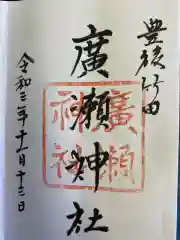 豊後竹田
廣瀬神社
廣瀬神社
令和三年十一月十三日